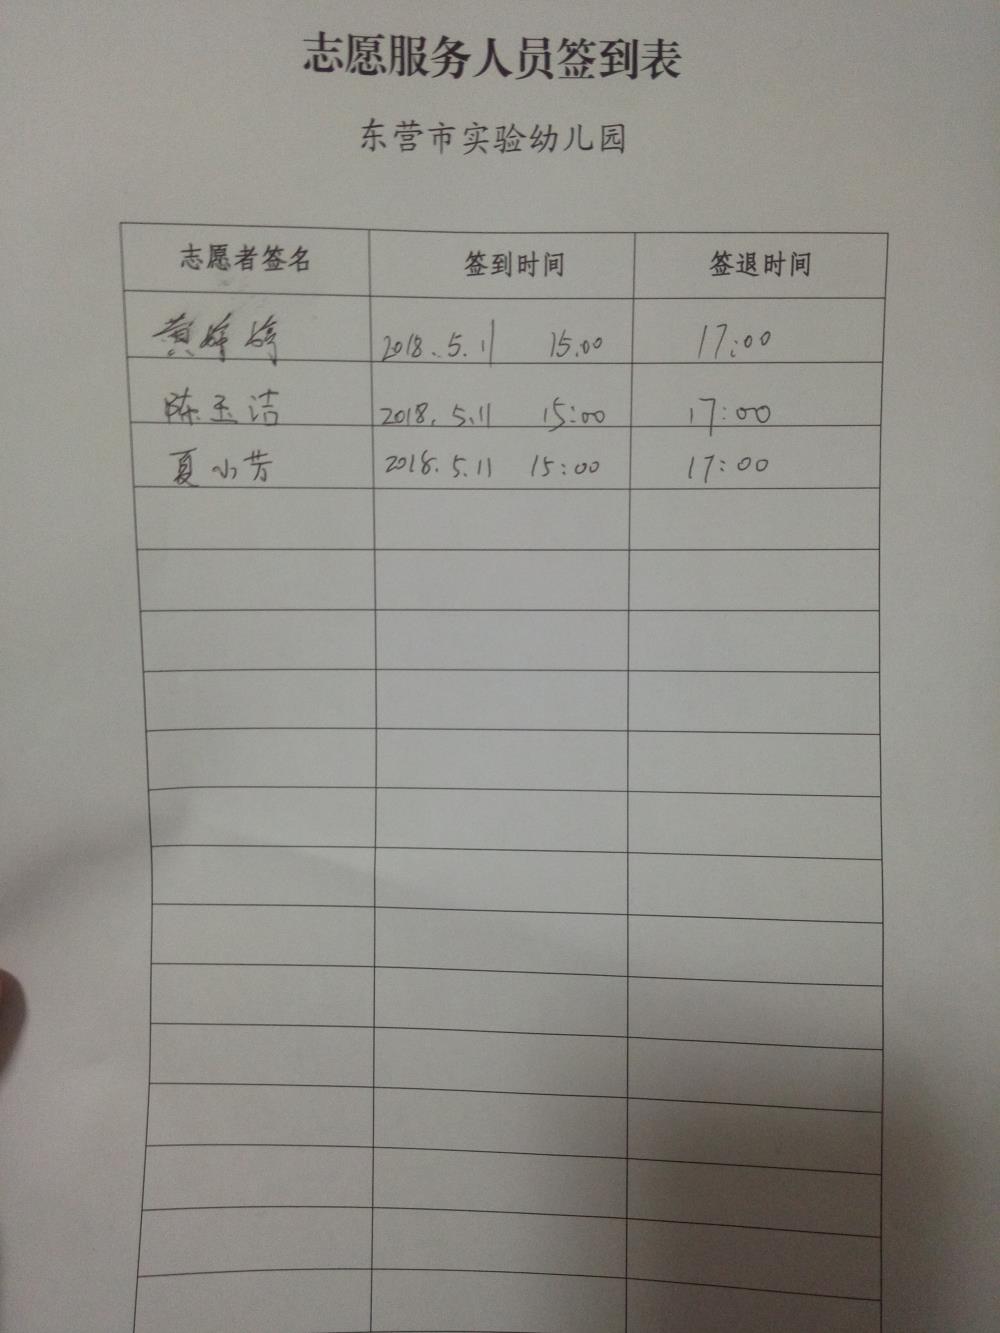 志愿服务人员签到表
东营市实验幼儿园
志愿者签名 签到时间 签退时间
黄婷婷 2018.5.11 15:00 17:00
陈玉洁 2018.5.11 15:00 17:00
夏小芳 2018.5.11 15:00 17:00